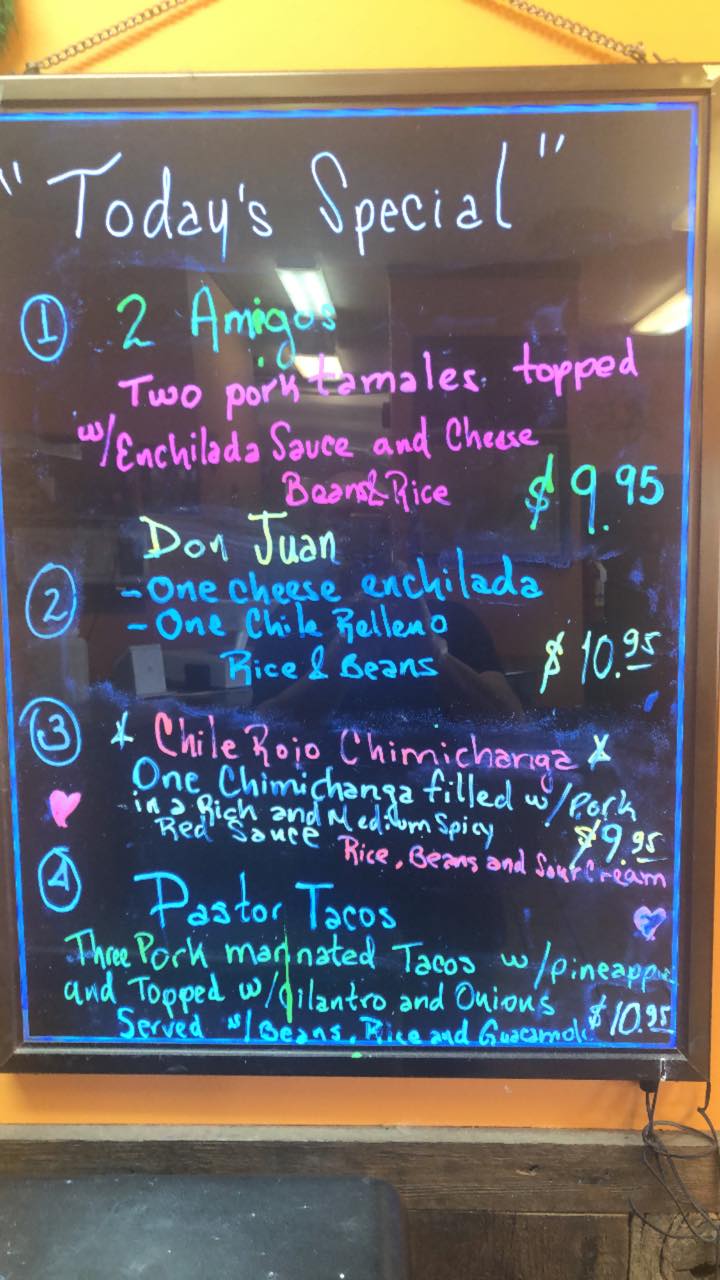 "Today's Special"
1 2 Amigos
Two pork tamales topped
w/Enchilada Sauce and Cheese
Beans & Rice $9.95
Don Juan
2 - One cheese enchilada
- One Chile Relleno
Rice & Beans $10.95
3 Chile Rojo Chimichanga
One Chimichanga filled w/ Pork
in a Rich and Medium Spicy
Red Sauce $9.95
Rice, Beans and Sour Cream
4 Pastor Tacos
Three Pork marinated Tacos w/pineapple
and Topped w/Cilantro and Onions $10.95
Served w/Beans, Rice and Guacamole